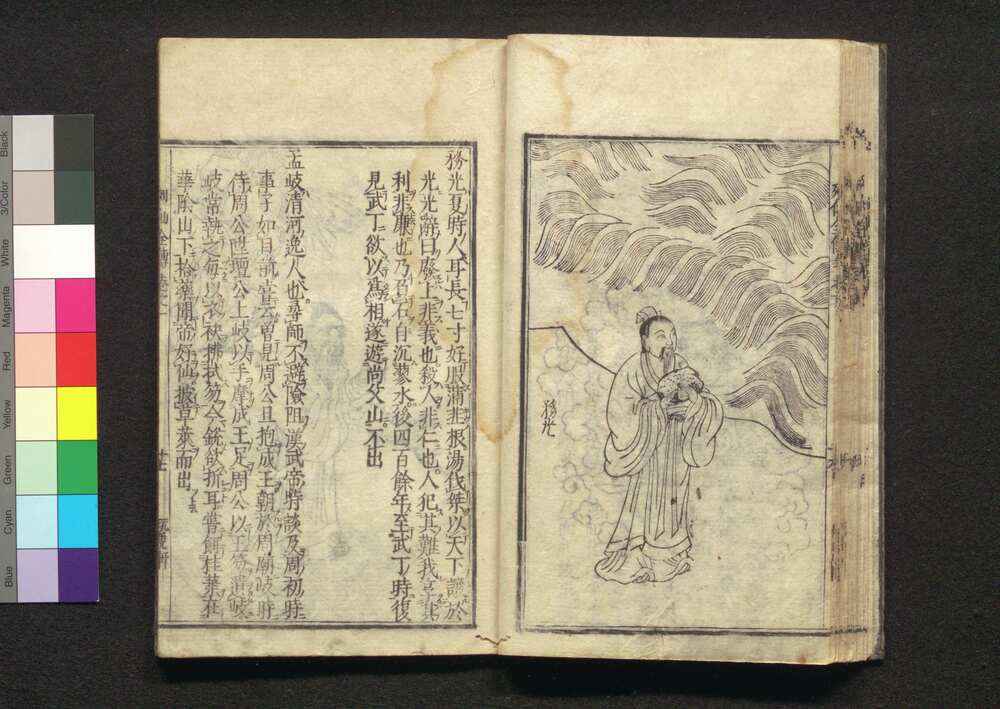 務光
務光夏時人耳長七寸好服蒲韭根湯伐桀以天下讓於
光光辭曰廢上非義也殺人非仁也人犯其難我享其
利非廉也乃負石自沉蓼水後四百餘年至武丁時復
見武丁欲以爲相遂遊尚父山不出
孟岐清河逸人也尋師不避險阻漢武帝時談及周初時
事了如目前嘗云曾見周公旦抱成王朝於周廟岐時
侍周公陞壇公上岐以手摩成王足周公以玉笏遺岐
岐常執之每以衣袂拂拭笏今銳欲折耳嘗餌桂葉在
華陰山下拾藥聞帝好仙披草萊而出
Black
3/Color
White
Magenta
Red
Yellow
Green
Cyan
Blue